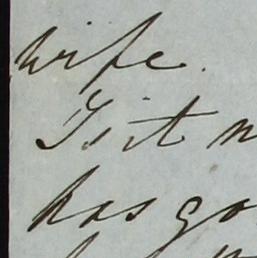 wife.
Is it n
has go